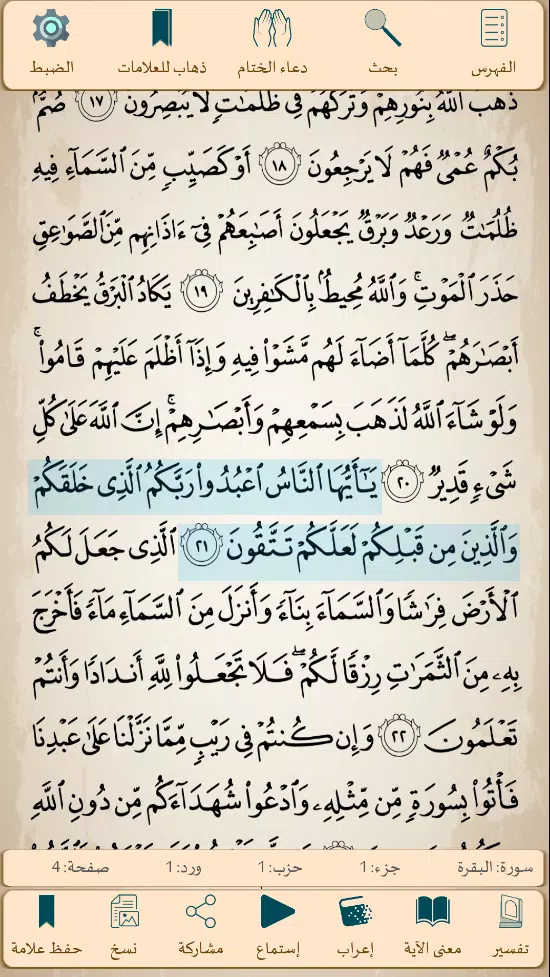 الفهرس
بحث
دعاء الختام
ذهاب للعلامات
الضبط
ذَهَبَ ٱللَّهُ بِنُورِهِمْ وَتَرَكَهُمْ فِى ظُلُمَٰتٍ لَّا يُبْصِرُونَ ١٧ صُمٌّۢ
بُكْمٌ عُمْىٌ فَهُمْ لَا يَرْجِعُونَ ١٨ أَوْ كَصَيِّبٍ مِّنَ ٱلسَّمَآءِ فِيهِ
ظُلُمَٰتٌ وَرَعْدٌ وَبَرْقٌ يَجْعَلُونَ أَصَٰبِعَهُمْ فِىٓ ءَاذَانِهِم مِّنَ ٱلصَّوَٰعِقِ
حَذَرَ ٱلْمَوْتِ ۚ وَٱللَّهُ مُحِيطٌۢ بِٱلْكَٰفِرِينَ ١٩ يَكَادُ ٱلْبَرْقُ يَخْطَفُ
أَبْصَٰرَهُمْ ۖ كُلَّمَآ أَضَآءَ لَهُم مَّشَوْا۟ فِيهِ وَإِذَآ أَظْلَمَ عَلَيْهِمْ قَامُوا۟ ۚ
وَلَوْ شَآءَ ٱللَّهُ لَذَهَبَ بِسَمْعِهِمْ وَأَبْصَٰرِهِمْ ۚ إِنَّ ٱللَّهَ عَلَىٰ كُلِّ
شَىْءٍ قَدِيرٌ ٢٠ يَٰٓأَيُّهَا ٱلنَّاسُ ٱعْبُدُوا۟ رَبَّكُمُ ٱلَّذِى خَلَقَكُمْ
وَٱلَّذِينَ مِن قَبْلِكُمْ لَعَلَّكُمْ تَتَّقُونَ ٢١ ٱلَّذِى جَعَلَ لَكُمُ
ٱلْأَرْضَ فِرَٰشًا وَٱلسَّمَآءَ بِنَآءً وَأَنزَلَ مِنَ ٱلسَّمَآءِ مَآءً فَأَخْرَجَ
بِهِۦ مِنَ ٱلثَّمَرَٰتِ رِزْقًا لَّكُمْ ۖ فَلَا تَجْعَلُوا۟ لِلَّهِ أَندَادًا وَأَنتُمْ
تَعْلَمُونَ ٢٢ وَإِن كُنتُمْ فِى رَيْبٍ مِّمَّا نَزَّلْنَا عَلَىٰ عَبْدِنَا
فَأْتُوا۟ بِسُورَةٍ مِّن مِّثْلِهِۦ وَٱدْعُوا۟ شُهَدَآءَكُم مِّن دُونِ ٱللَّهِ
سورة: البقرة
جزء: 1
حزب: 1
ورد: 1
صفحة: 4
تفسير
معنى الآية
إعراب
إستماع
مشاركة
نسخ
حفظ علامة